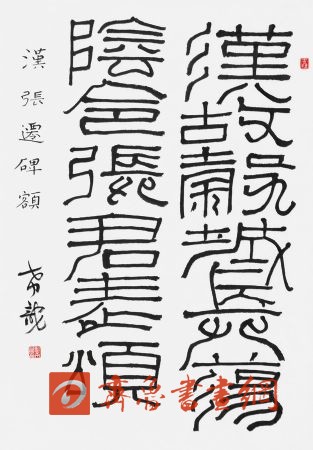 漢故穀城長蕩
陰令張君表頌
漢張遷碑額
齊魯書畫網